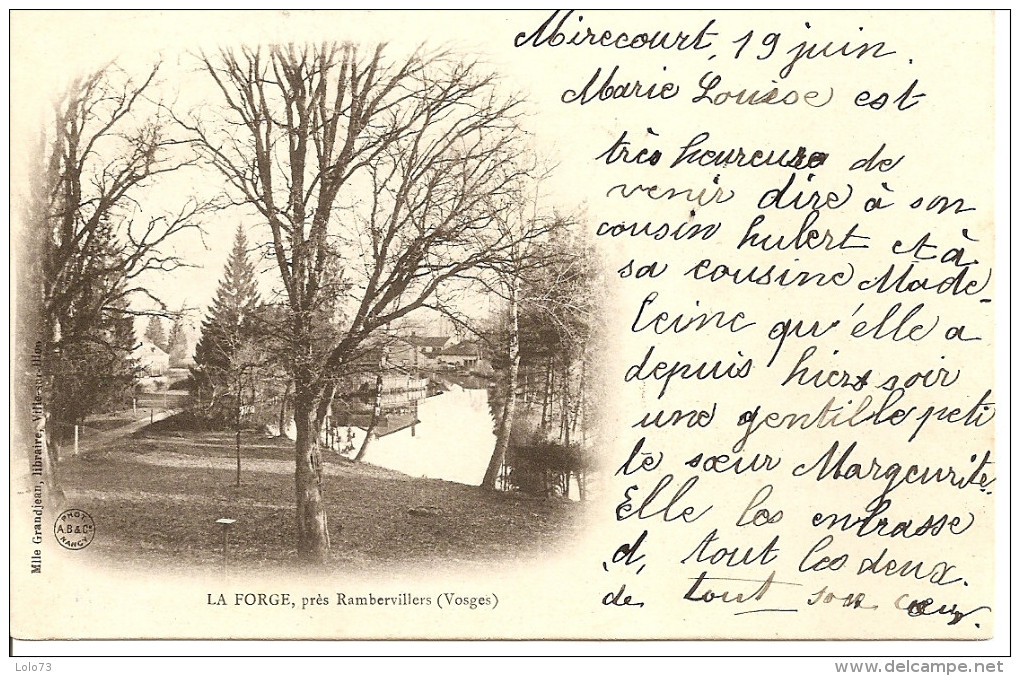 Mirecourt, 19 juin.
Marie Louise est
très heureuse de
venir dire à son
cousin hubert et à
sa cousine Made-
leine qu'elle a
depuis hier soir
une gentille peti
te sœur Marguerite.
Elle les embrasse
tout les deux.
de tout son cœur.
Mlle Grandjean, libraire, Ville-sur-Illon
PHOT
A.B & Cie
NANCY
LA FORGE, près Rambervillers (Vosges)
Lolo73
www.delcampe.net